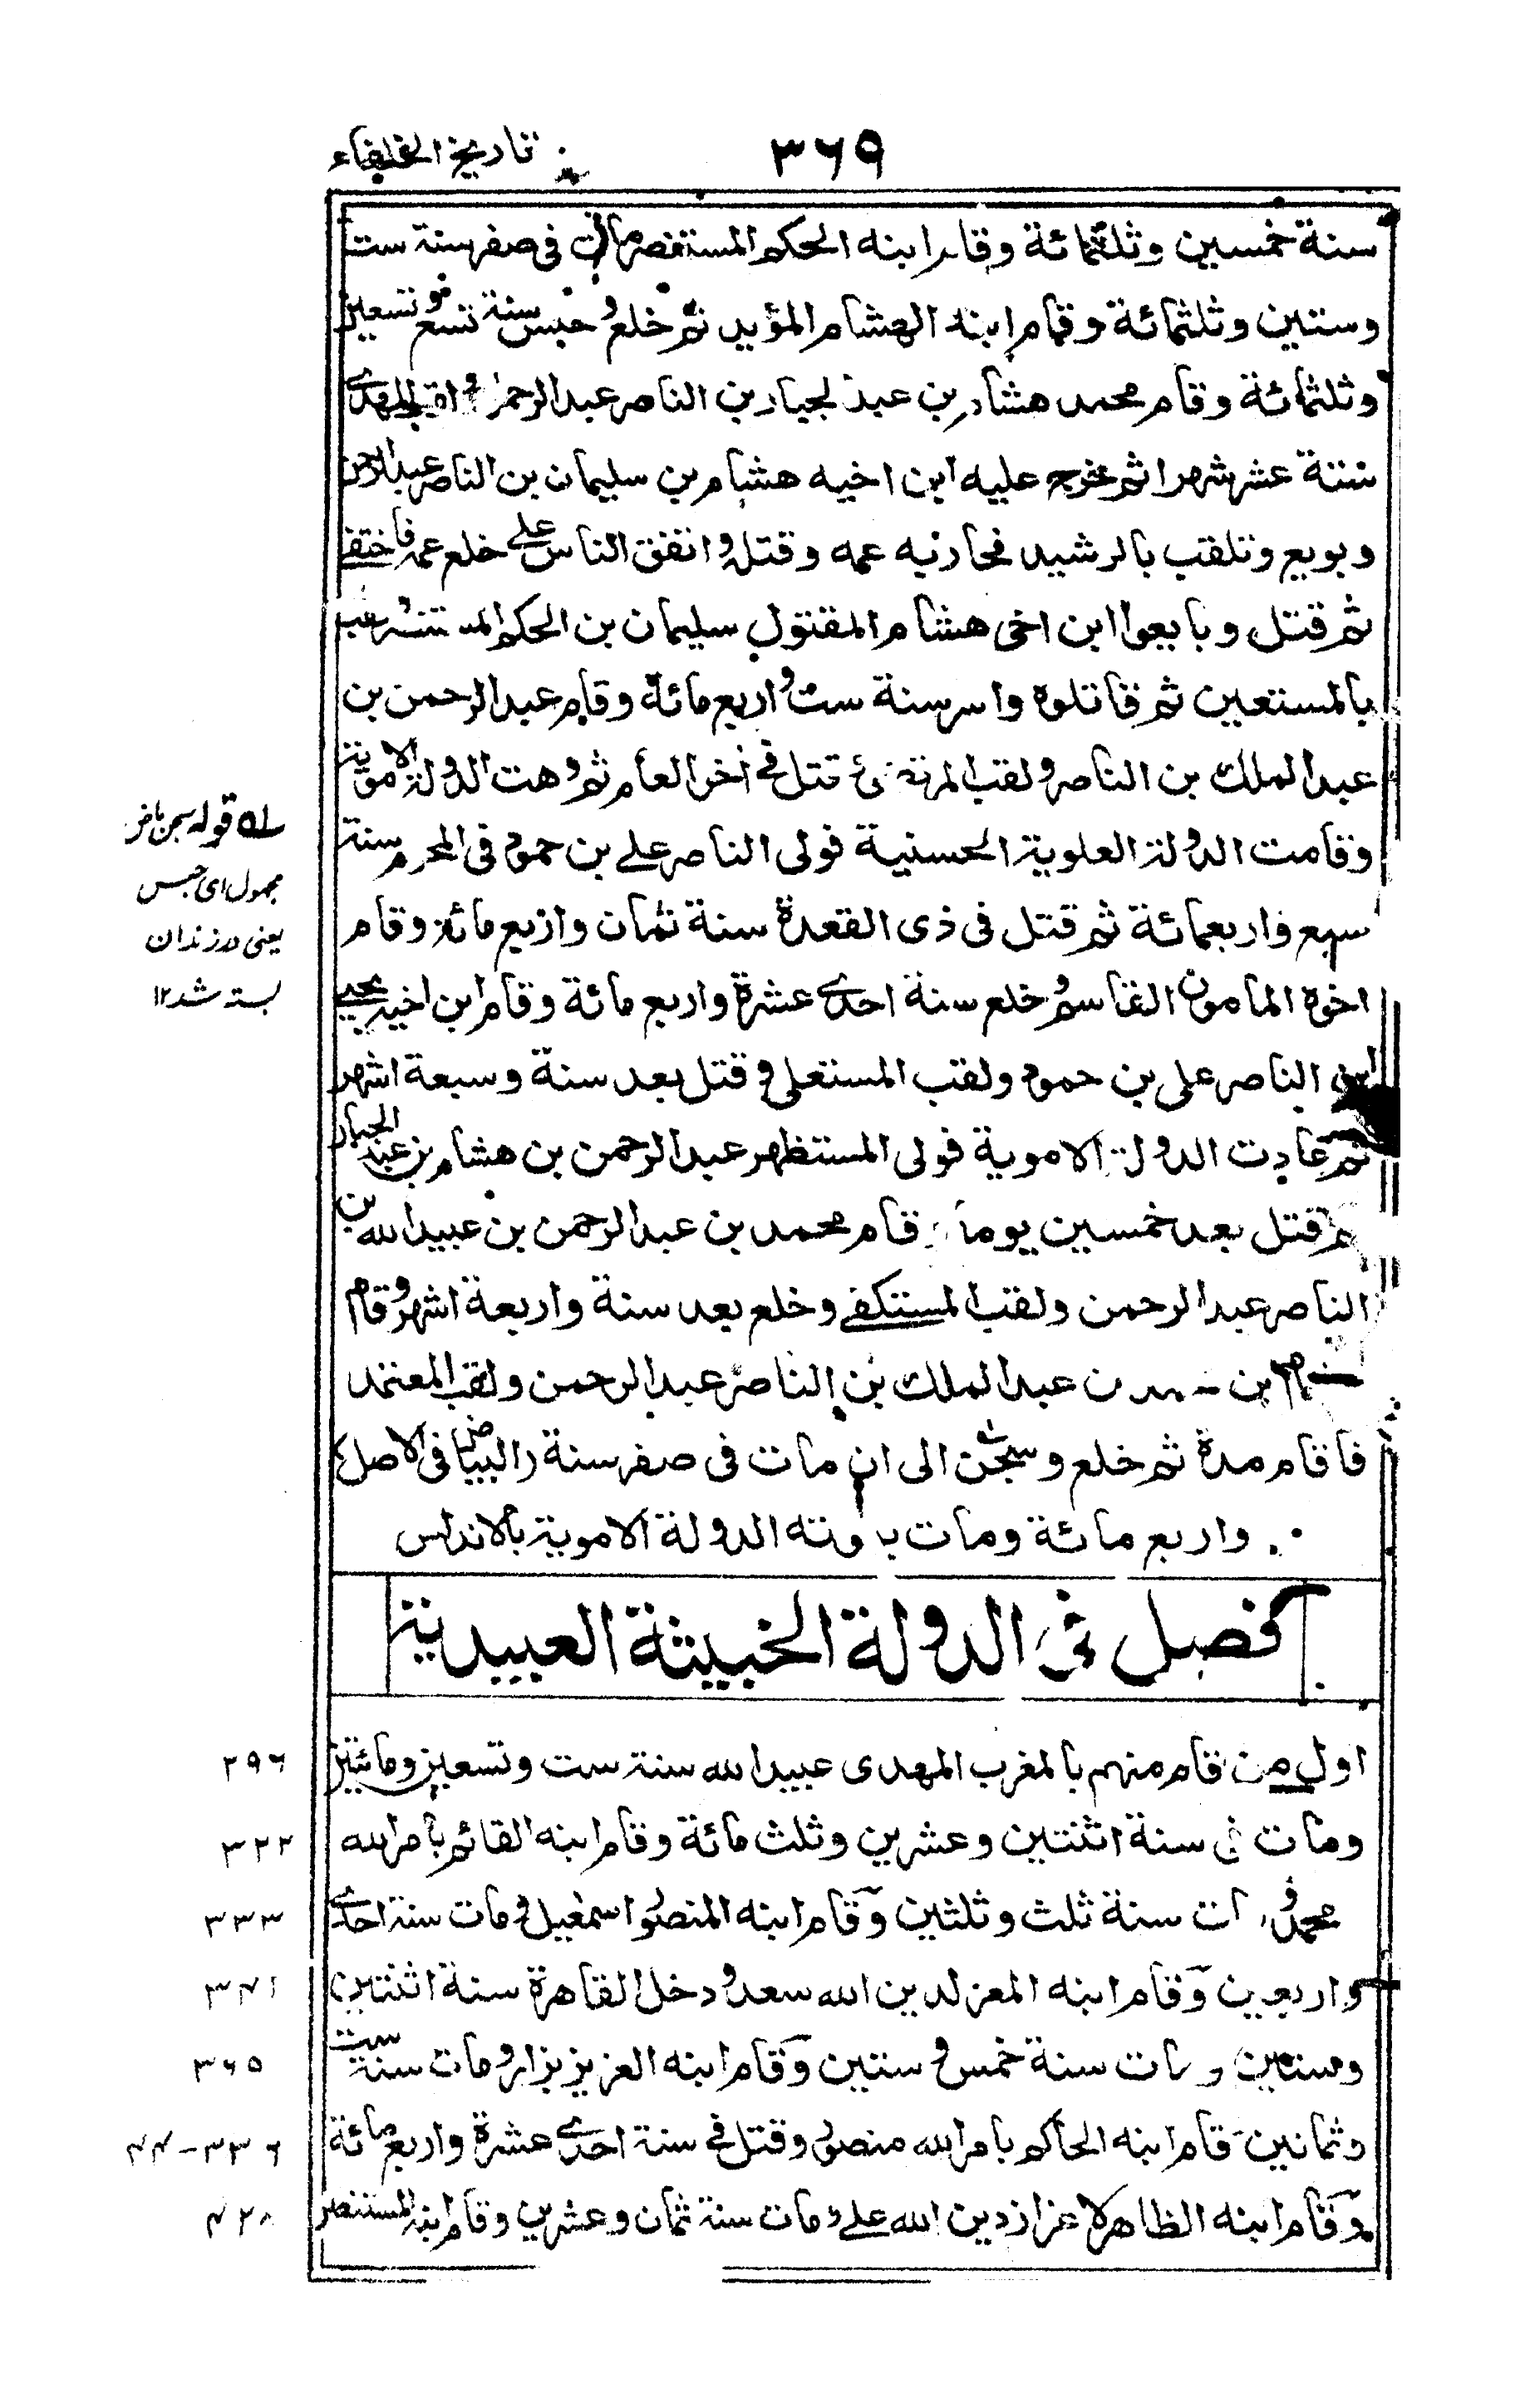 ٣٦٩
تاريخ الخلفاء
سنة خمسين وثلثمائة وقام ابنه الحكم المستنصر مات في صفر سنة ست
وستين وثلثمائة وقام ابنه الهشام المؤيد ثم خلع و حبس سنة تسع و تسعين
وثلثمائة وقام محمد هشام بن عبد لجبار بن الناصر عبد الرحمن و لقب المهدي
ستة عشر شهرا ثم خرج عليه ابن اخيه هشام بن سليمان بن الناصر عبد الرحمن
وبويع وتلقب بالرشيد فحاربه عمه وقتله و اتفق الناس على خلع عمه فاختفى
ثم قتل وبايعوا ابن اخي هشام المقتول سليمان بن الحكم المستنصر
بالمستعين ثم قاتلوه واسر سنة ست و اربع مائة وقام عبد الرحمن بن
عبد الملك بن الناصر و لقب المرتضى قتل في أخر العام ثم وهت الدولة الاموية
وقامت الدولة العلوية الحسنية فولى الناصر على بن حمود في المحرم سنة
سبع واربعمائة ثم قتل في ذى القعدة سنة ثمان واربع مائة وقام
اخوة المامون القاسم و خلع سنة احدى عشرة واربع مائة وقام ابن اخيه يحيى
ابن الناصر على بن حمود ولقب المستعلى و قتل بعد سنة وسبعة اشهر
ثم عادت الدولة الاموية فولى المستظهر عبد الرحمن بن هشام بن عبد الجبار
ثم قتل بعد خمسين يوما قام محمد بن عبد الرحمن بن عبيد الله بن
الناصر عبد الرحمن ولقب المستكفى وخلع بعد سنة واربعة اشهر و قام
هشام بن عبد الملك بن الناصر عبد الرحمن ولقب المعتمد
فاقام مدة ثم خلع وسجن الى ان مات في صفر سنة (البياض في الاصل)
واربع مائة ومات بموته الدولة الاموية بالاندلس
فصل في الدولة الخبيثة العبيدية
اول من قام منهم بالمغرب المهدى عبيد الله سنة ست وتسعين ومائتين
ومات في سنة اثنتين وعشرين وثلث مائة وقام ابنه القائم بامر الله
محمد و مات سنة ثلث وثلثين وقام ابنه المنصور اسمعيل و مات سنة احدى
واربعين وقام ابنه المعز لدين الله سعد و دخل القاهرة سنة اثنتين
وستين و مات سنة خمس و ستين وقام ابنه العزيز بزار و مات سنة ست
وثمانين قام ابنه الحاكم بامر الله منصور وقتل في سنة احدى عشرة واربع مائة
وقام ابنه الظاهر لا عزاز دين الله على و مات سنة ثمان وعشرين وقام ابنه المستنصر
له قوله سجن ماض
مجهول اى حبس
يعنى در زندان
بسته شد ١٢
٢٩٦
٣٢٢
٣٣٣
٣٤١
٣٦٥
٣٣٦-٤٤
٤٢٨